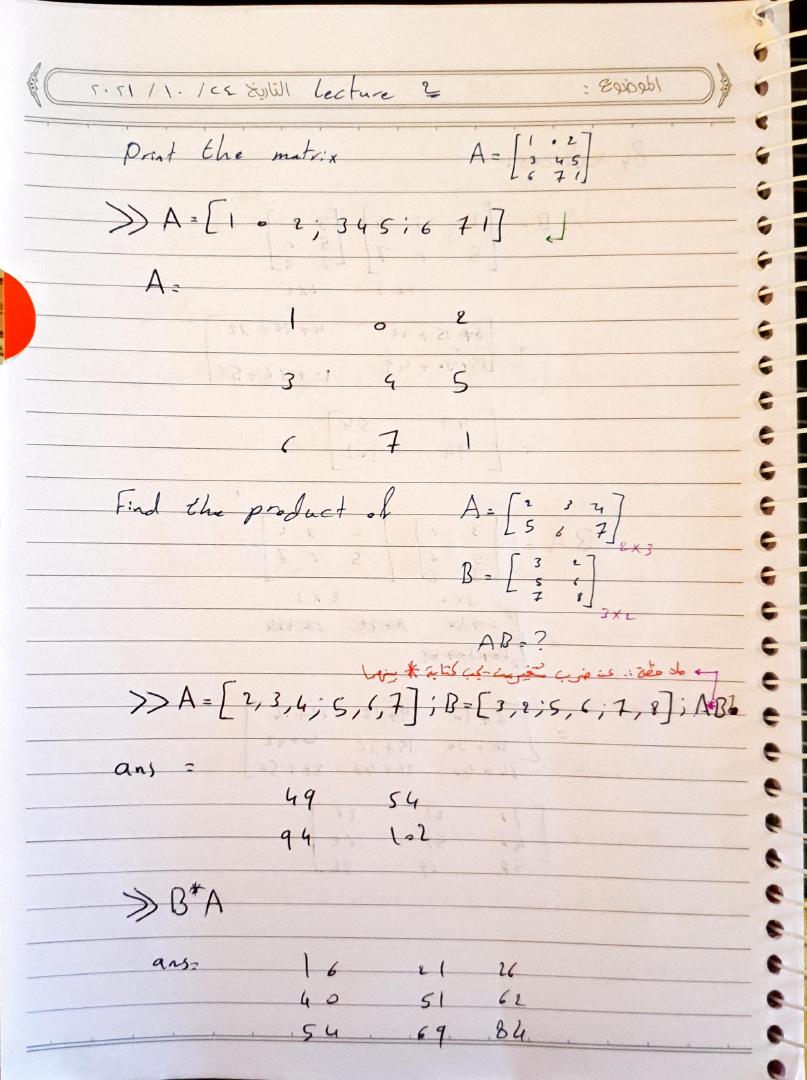 الموضوع : lecture 2 التاريخ ٢٤ / ١٠ / ٢٠٢١
Print the matrix A = [1 0 2
3 4 5
6 7 1]
>> A = [1 0 2; 3 4 5; 6 7 1] ↵
A =
1 0 2
3 4 5
6 7 1
Find the product of A = [2 3 4
5 6 7] 2×3
B = [3 2
5 6
7 8] 3×2
AB = ?
ملاحظة :. عند ضرب متغيرين يجب كتابة * بينهما
>> A = [2,3,4; 5,6,7]; B = [3,2; 5,6; 7,8]; A*B
ans =
49 54
94 102
>> B*A
ans =
16 21 26
40 51 62
54 69 84